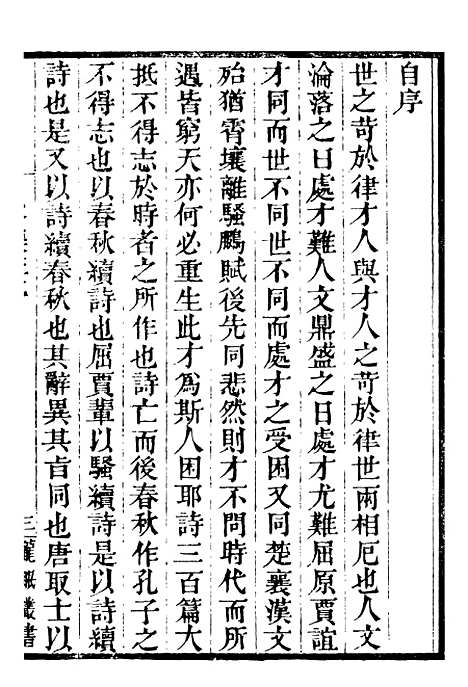 自序
世之苛於律才人與才人之苛於律世兩相厄也人文
淪落之日處才難人文鼎盛之日處才尤難屈原賈誼
才同而世不同世不同而處才之受困又同楚襄漢文
殆猶霄壤離騷鵩賦後先同悲然則才不問時代而所
遇皆窮天亦何必重生此才爲斯人困耶詩三百篇大
抵不得志於時者之所作也詩亡而後春秋作孔子之
不得志也以春秋續詩也屈賈輩以騷續詩是以詩續
詩也是又以詩續春秋也其辭異其旨同也唐取士以
叢書